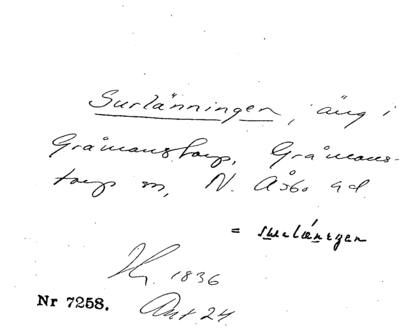 Surlänningen, äng i
Gråmanstorp, Gråmans-
torp sn, N. Åsbo hd.
= surlæningen
Hg. 1836
Nr 7258. Akt 24